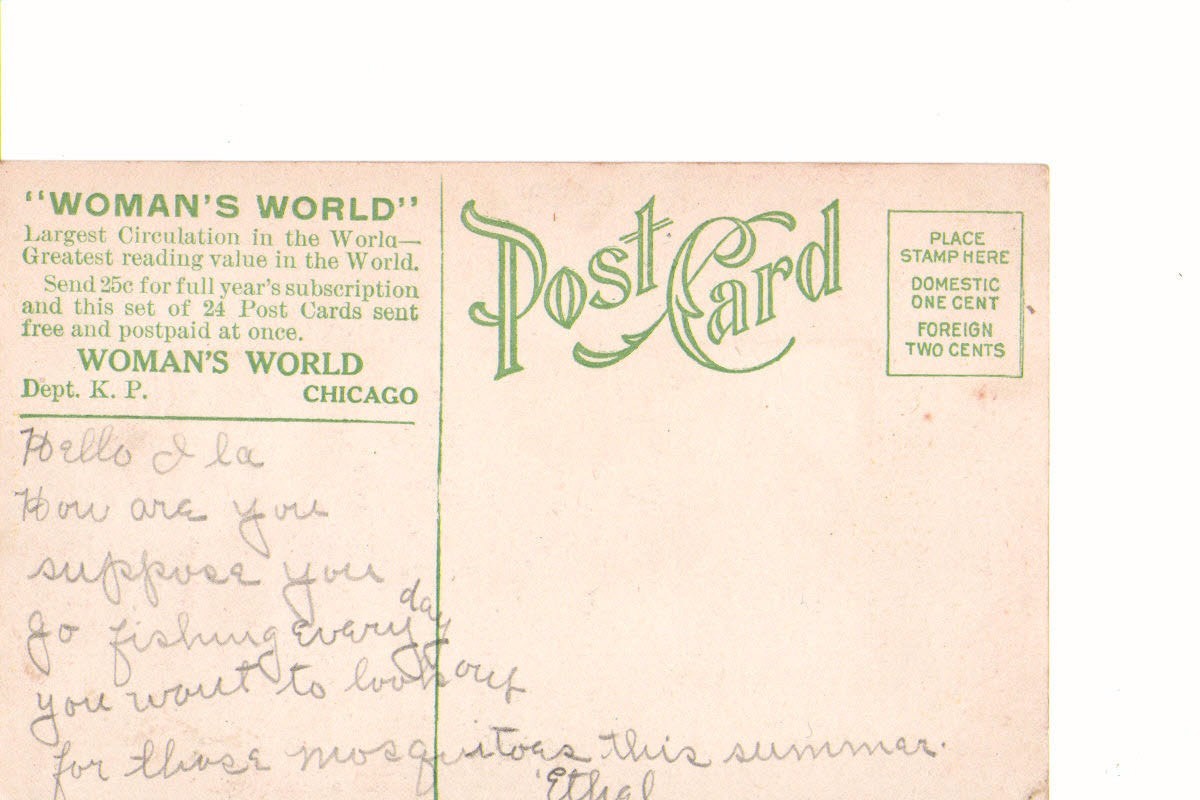 "WOMAN'S WORLD"
Largest Circulation in the World—
Greatest reading value in the World.
Send 25c for full year's subscription
and this set of 24 Post Cards sent
free and postpaid at once.
WOMAN'S WORLD
Dept. K. P. CHICAGO
Post Card
PLACE
STAMP HERE
DOMESTIC
ONE CENT
FOREIGN
TWO CENTS
Hello Ila
How are you
suppose you
go fishing every day
you want to look out
for those mosquitoes this summer.
Ethel